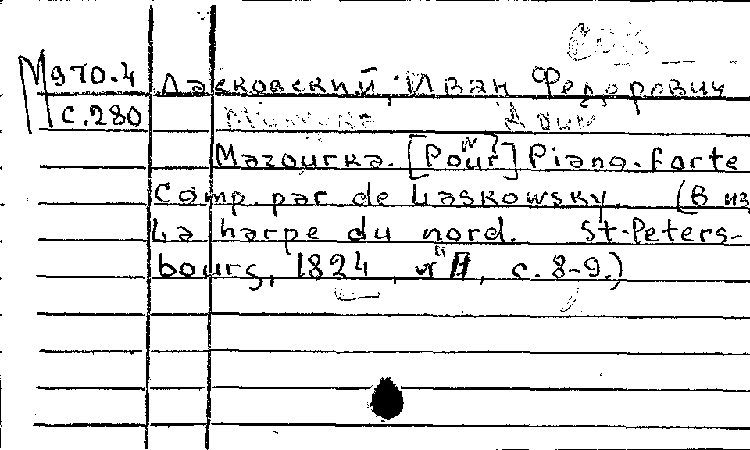 М970.4 Ласковский, Иван Федорович
с.280
Mazourka. [Pour] Piano-forte
Comp. par de Laskowsky. (В из
La harpe du nord. St-Peters-
bourg, 1824, с. 8-9.)